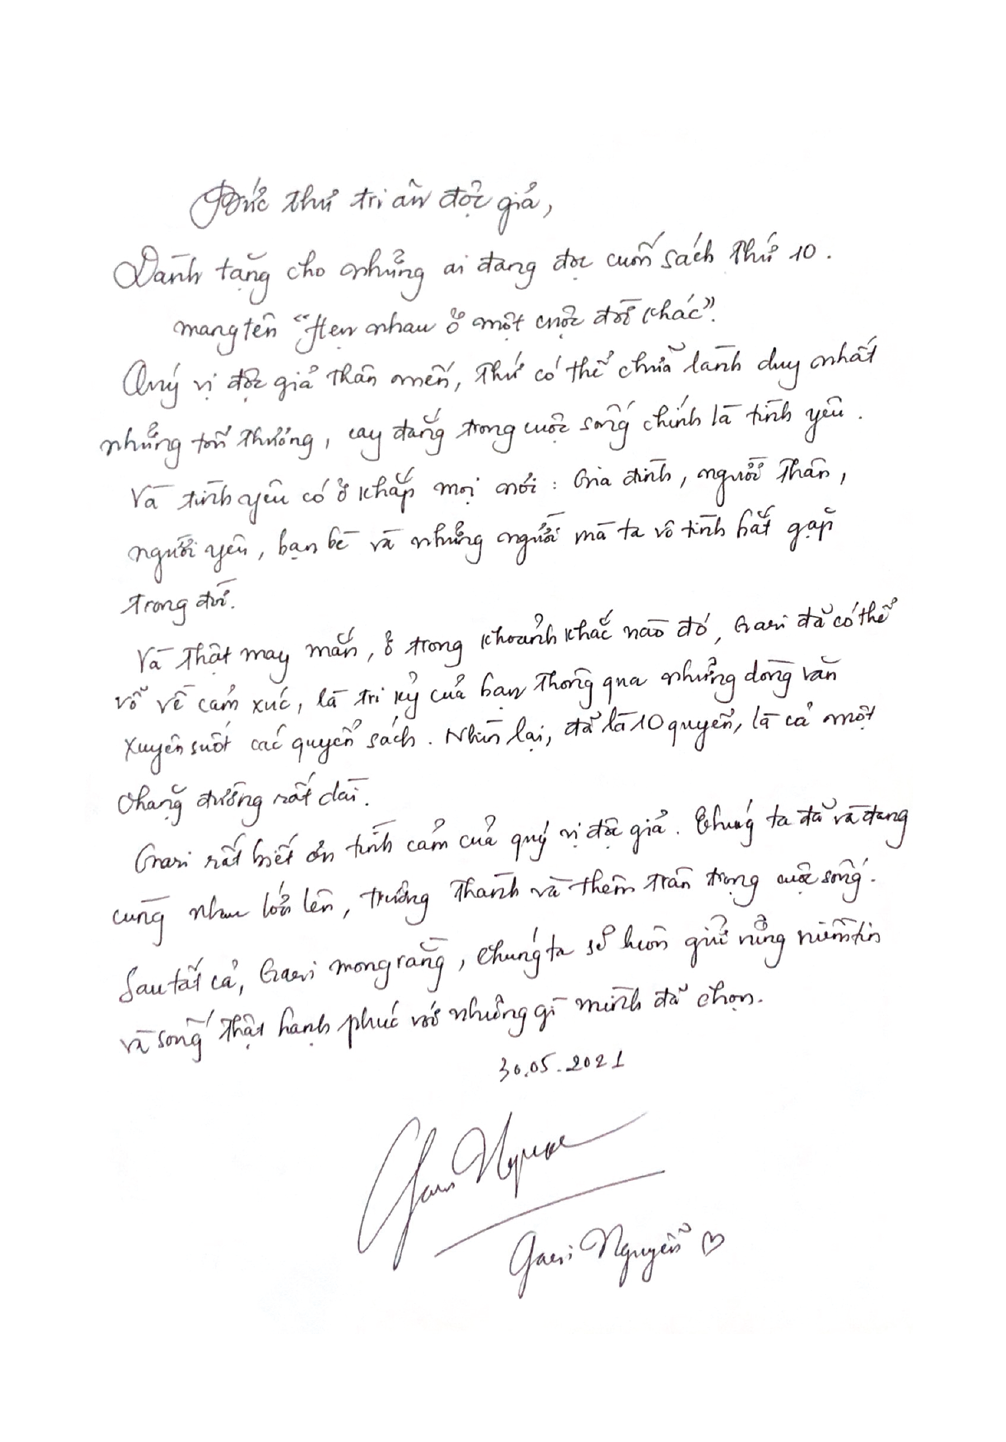 Bức thư tri ân độc giả,
Dành tặng cho những ai đang đọc cuốn sách thứ 10.
mang tên "Hẹn nhau ở một cuộc đời khác".
Quý vị độc giả thân mến, thứ có thể chữa lành duy nhất
những tổn thương, cay đắng trong cuộc sống chính là tình yêu.
Và tình yêu có ở khắp mọi nơi: Gia đình, người thân,
người yêu, bạn bè và những người mà ta vô tình bắt gặp
trong đời.
Và thật may mắn, ở trong khoảnh khắc nào đó, Gari đã có thể
vỗ về cảm xúc, là tri kỷ của bạn thông qua những dòng văn
xuyên suốt các quyển sách. Nhìn lại, đã là 10 quyển, là cả một
chặng đường rất dài.
Gari rất biết ơn tình cảm của quý vị độc giả. Chúng ta đã và đang
cùng nhau lớn lên, trưởng thành và thêm trân trọng cuộc sống.
Sau tất cả, Gari mong rằng, chúng ta sẽ luôn giữ vững niềm tin
và sống thật hạnh phúc với những gì mình đã chọn.
30.05.2021
Gari Nguyễn ♡